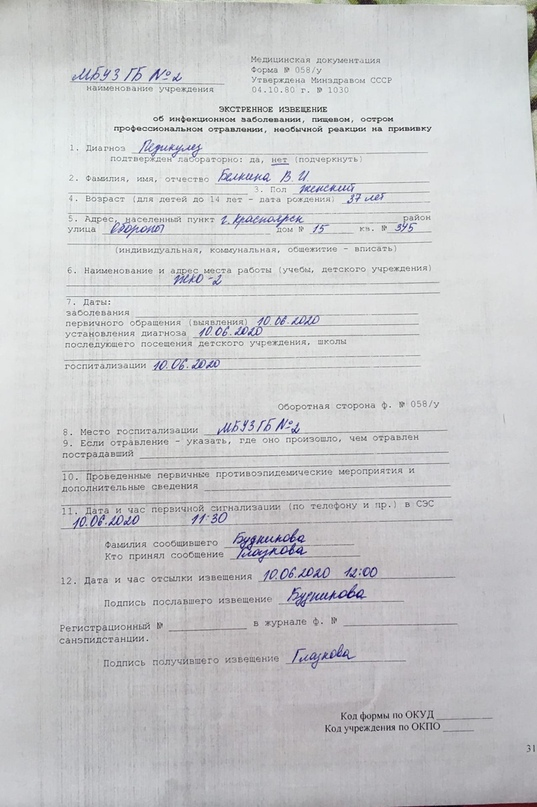 Медицинская документация
МБУЗ ГБ №2 Форма № 058/у
наименование учреждения Утверждена Минздравом СССР
04.10.80 г. № 1030
ЭКСТРЕННОЕ ИЗВЕЩЕНИЕ
об инфекционном заболевании, пищевом, остром
профессиональном отравлении, необычной реакции на прививку
1. Диагноз Педикулез
подтвержден лабораторно: да, нет (подчеркнуть)
2. Фамилия, имя, отчество Белкина В.И
3. Пол женский
4. Возраст (для детей до 14 лет - дата рождения) 37 лет
5. Адрес, населенный пункт г. Красноярск район
улица Обороны дом № 15 кв. № 345
(индивидуальная, коммунальная, общежитие - вписать)
6. Наименование и адрес места работы (учебы, детского учреждения)
ЖКО-2
7. Даты:
заболевания
первичного обращения (выявления) 10.06.2020
установления диагноза 10.06.2020
последующего посещения детского учреждения, школы
госпитализации 10.06.2020
Оборотная сторона ф. № 058/у
8. Место госпитализации МБУЗ ГБ №2
9. Если отравление - указать, где оно произошло, чем отравлен
пострадавший
10. Проведенные первичные противоэпидемические мероприятия и
дополнительные сведения
11. Дата и час первичной сигнализации (по телефону и пр.) в СЭС
10.06.2020 11:30
Фамилия сообщившего Будникова
Кто принял сообщение Глазкова
12. Дата и час отсылки извещения 10.06.2020 12:00
Подпись пославшего извещение Будникова
Регистрационный № в журнале ф. №
санэпидстанции.
Подпись получившего извещение Глазкова
Код формы по ОКУД
Код учреждения по ОКПО
31